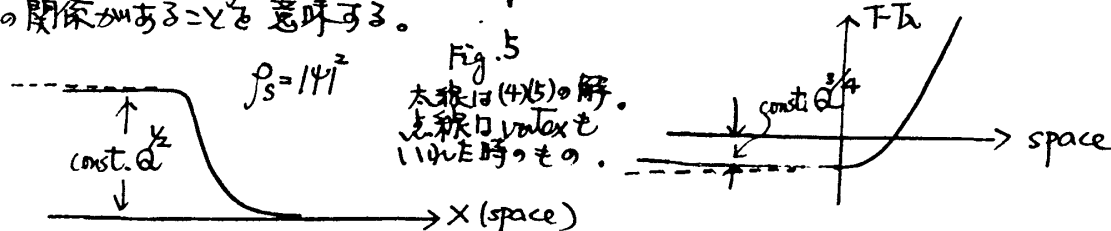 の関係があることを意味する。
ρs=|ψ|²
Fig.5
太線は(4)(5)の解。
点線は vortexも
いれた時のもの.
const. Q^1/2
X (space)
T-Tλ
const. Q^3/4
space